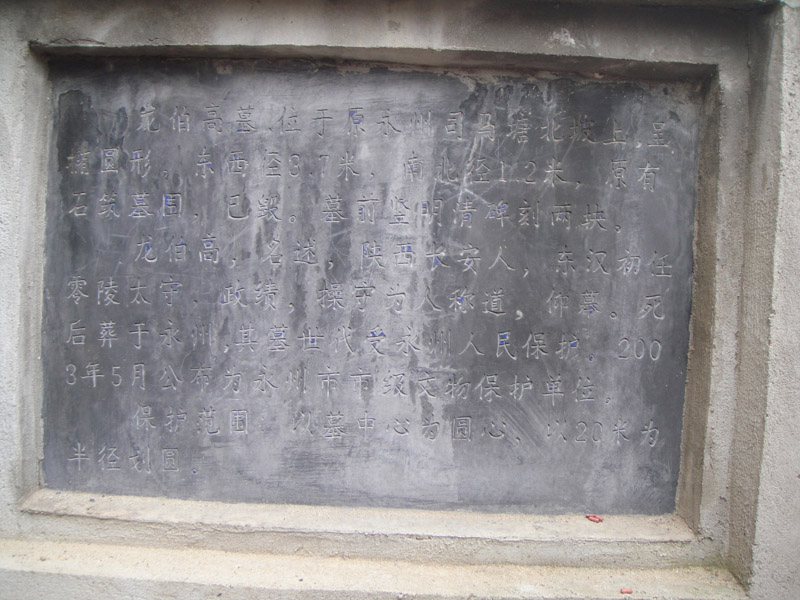 龙伯高墓,位于原永州司马塘北坡上,呈
椭圆形,东西径3.7米,南北径1.2米,原有
石筑墓围,已毁。墓前竖明清碑刻两块。
龙伯高,名述,陕西长安人,东汉初任
零陵太守,政绩,操守为人称道,仰慕。死
后葬于永州,其墓世代受永州人民保护。200
3年5月公布为永州市市级文物保护单位。
保护范围:以墓中心为圆心,以20米为
半径划圆。